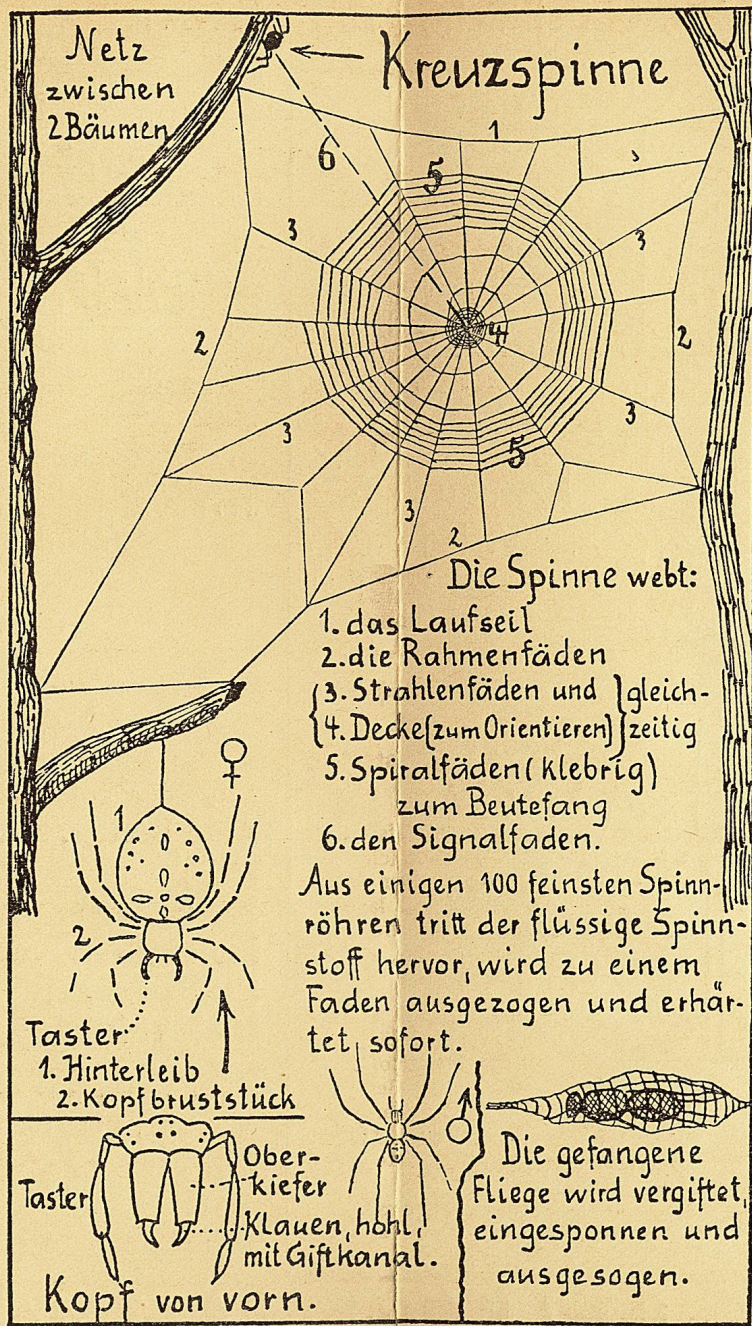 Netz
zwischen
2 Bäumen
Kreuzspinne
1
6
5
3
3
3
2
4
2
3
3
5
3
2
Die Spinne webt:
1. das Laufseil
2. die Rahmenfäden
{3. Strahlenfäden und } gleich-
{4. Decke [zum Orientieren] } zeitig
5. Spiralfäden (klebrig)
zum Beutefang
6. den Signalfaden.
♀
1
2
Aus einigen 100 feinsten Spinn-
röhren tritt der flüssige Spinn-
stoff hervor, wird zu einem
Faden ausgezogen und erhär-
tet sofort.
Taster
1. Hinterleib
2. Kopfbruststück
Taster
Ober-
kiefer
Klauen, hohl,
mit Giftkanal.
Kopf von vorn.
♂
Die gefangene
Fliege wird vergiftet,
eingesponnen und
ausgesogen.